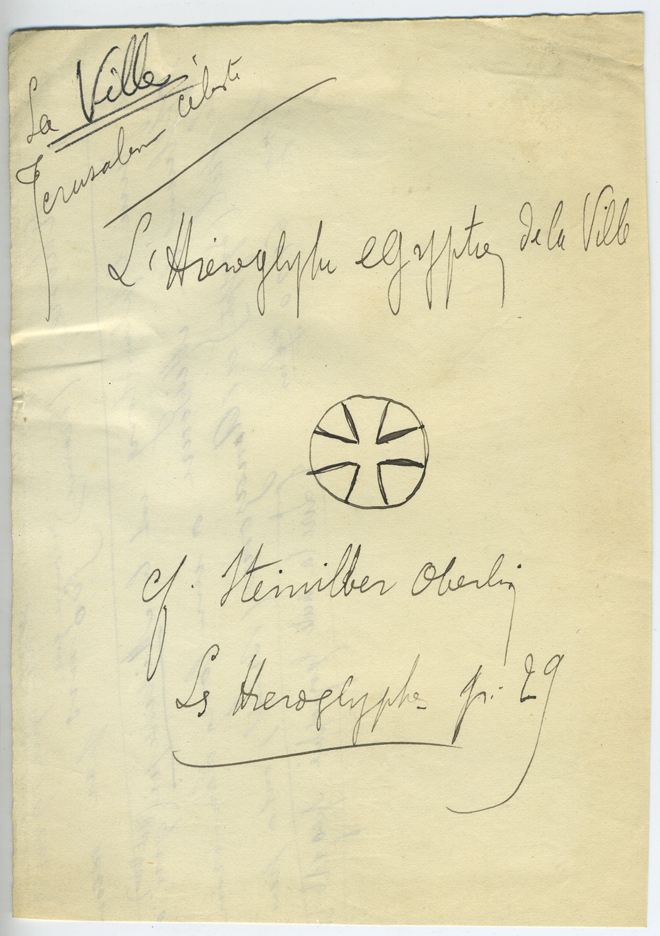 La Ville
Jerusalem céleste
L'Hieroglyphe egyptien de la Ville
cf. Steinilber Oberlin
Les Hieroglyphes p. 29